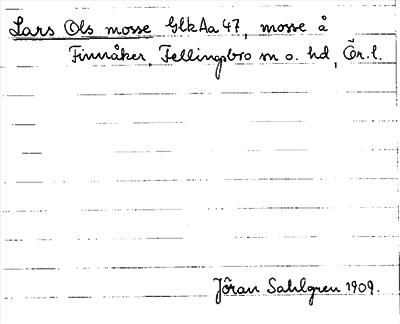 Lars Ols mosse GlkAa 47, mosse å
Finnåker, Fellingsbro sn o. hd, Ör. l.
Jöran Sahlgren 1909.